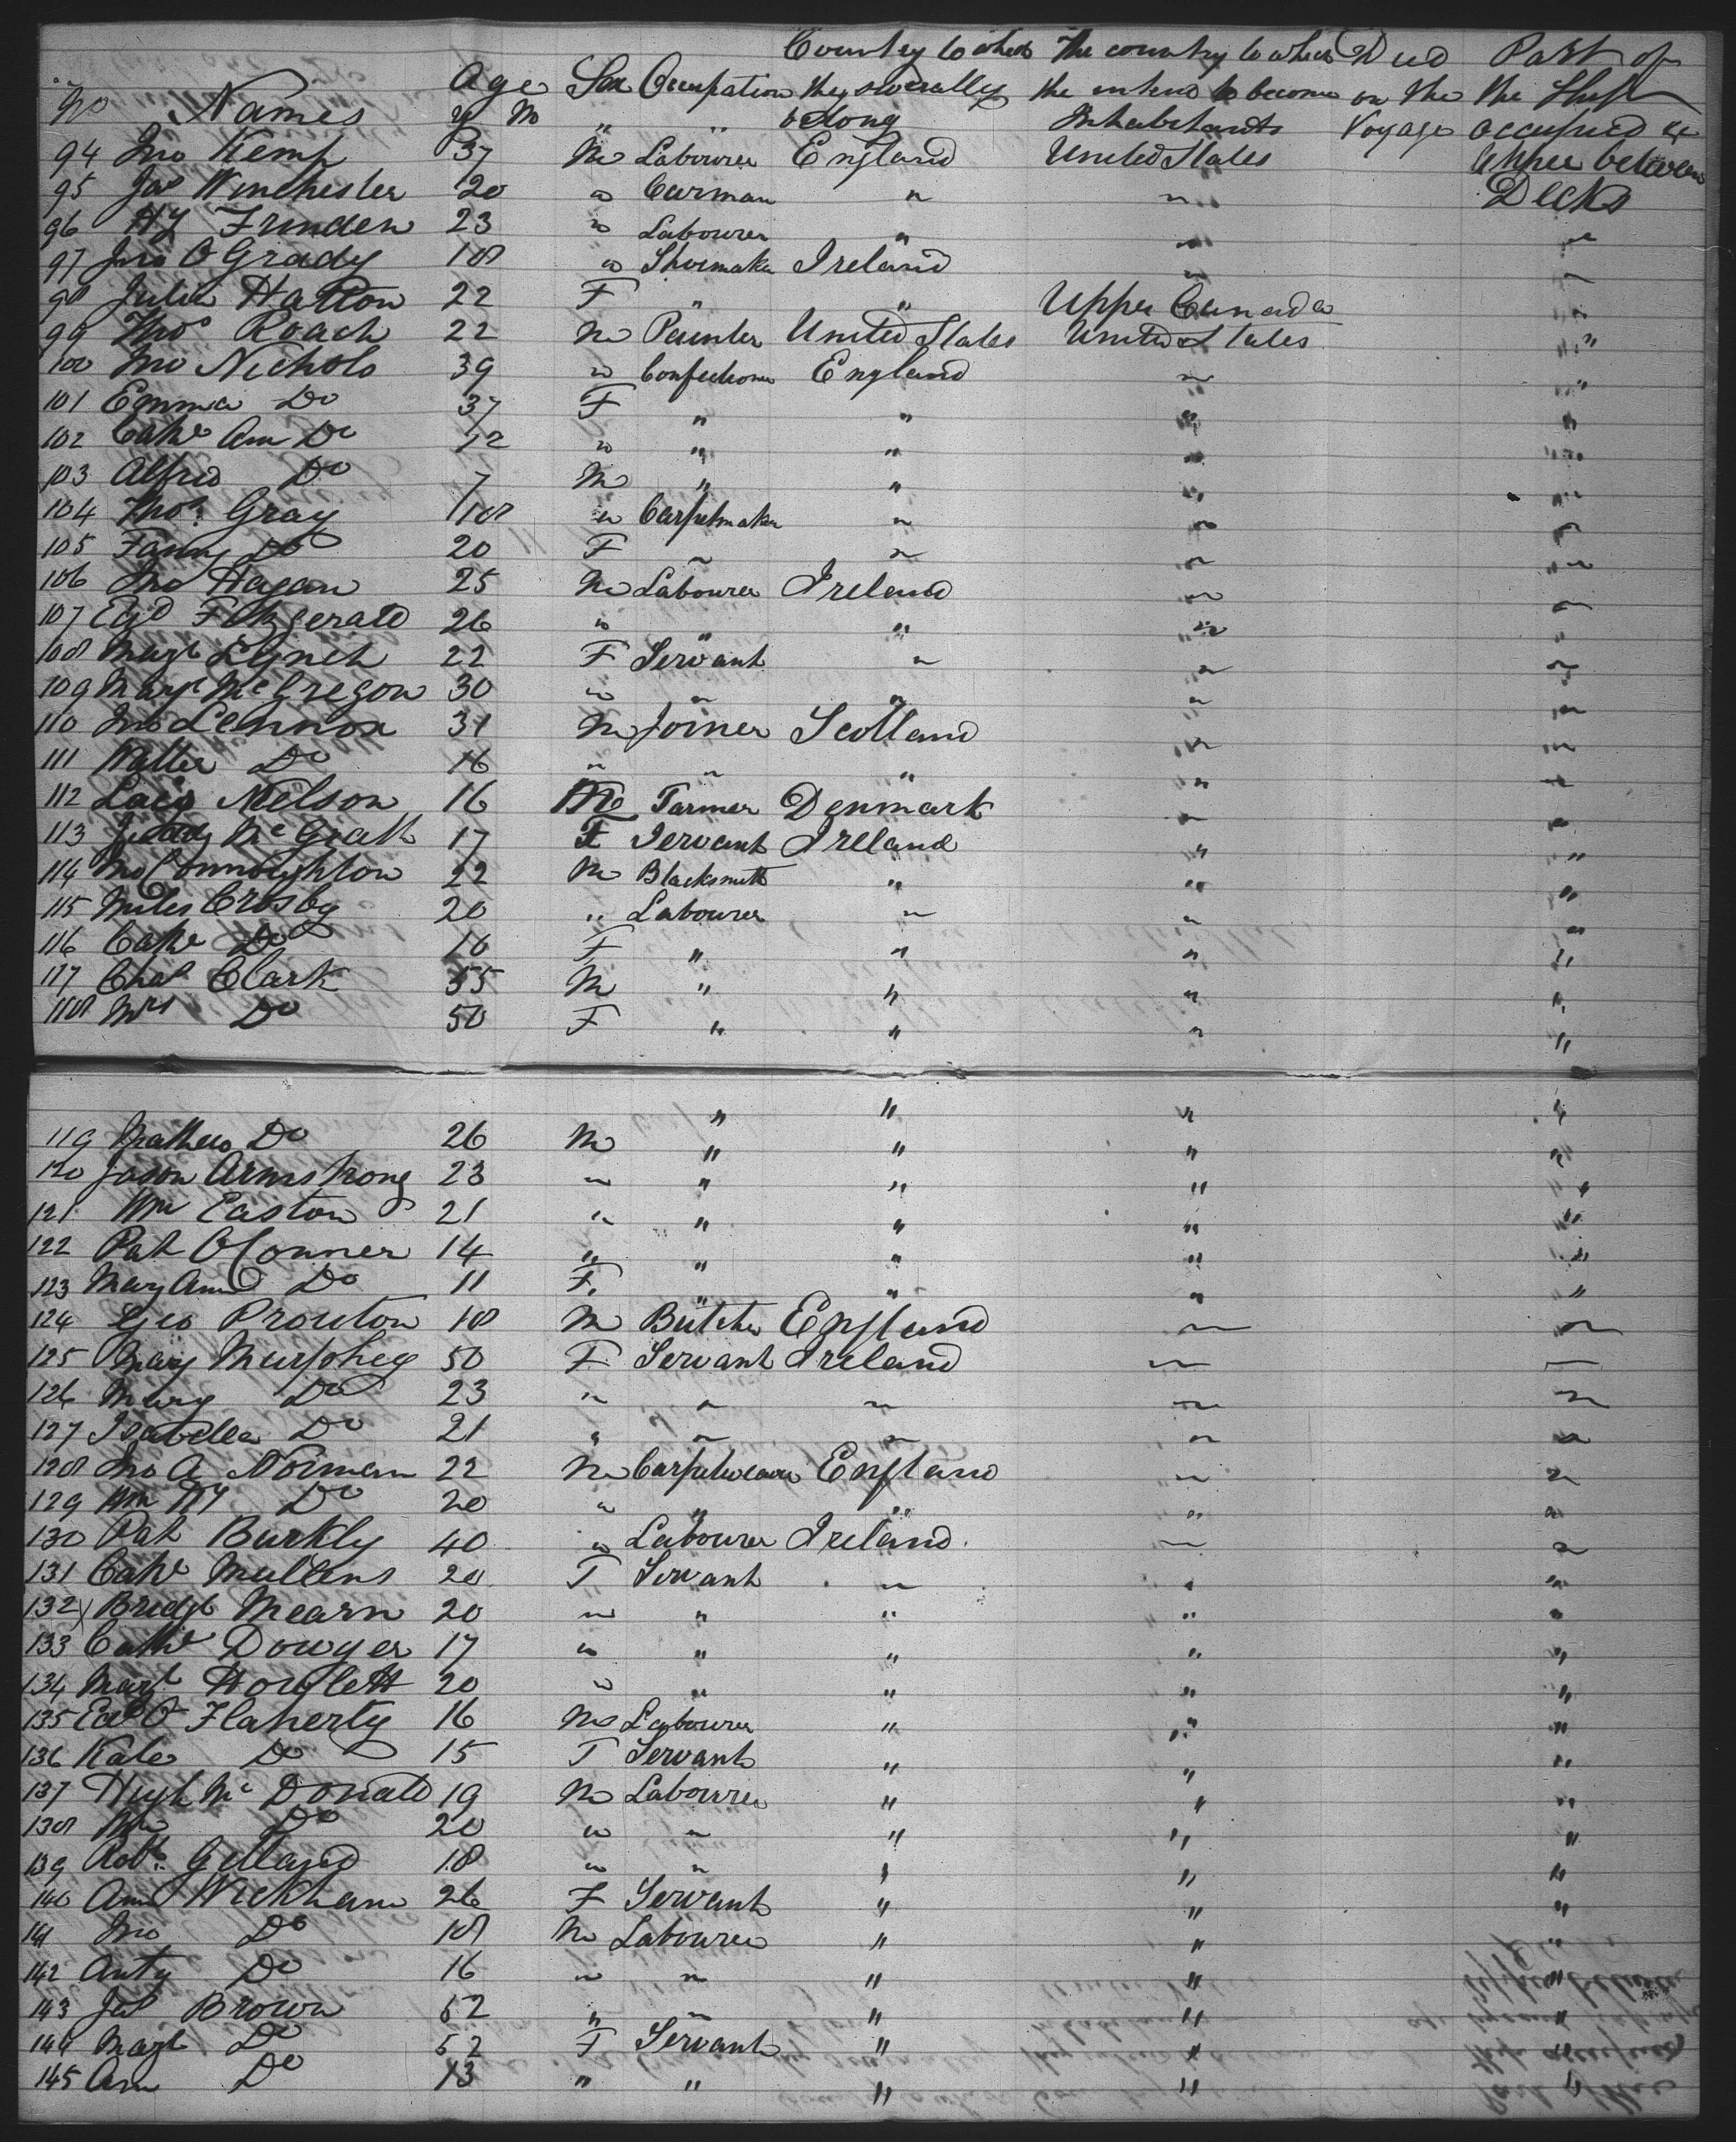 Country to which The country to which Died Part of
Age Sex Occupation they severally the intend to become on the the Ship
No Names y M " " belong Inhabitants Voyage occupied &c
94 Jno Kemp 37 M Labourer England United States Upper between
95 Jas Winchester 20 " Carman " " Decks
96 Hy Frunden 23 " Labourer " " "
97 Jno O Grady 18 " Shoemaker Ireland " "
98 Julia Hatton 22 F " " Upper Canada "
99 Thos Roach 22 M Painter United States United States "
100 Jno Nichols 39 " Confectioner England " "
101 Emma Do 37 F " " " "
102 Cathe Ann Do 12 " " " " "
103 Alfred Do 7 M " " " "
104 Thos Gray 18 " Carpetmaker " " "
105 Fanny Do 20 F " " " "
106 Jno Hagan 25 M Labourer Ireland " "
107 Ed Fitzgerald 26 " " " " "
108 Magt Lynch 22 F Servant " " "
109 Margt McGregor 30 " " " " "
110 Jno Lennox 31 M Joiner Scotland " "
111 Walter Do 16 " " " " "
112 Nelson 16 M Farmer Denmark " "
113 Mc Grath 17 F Servant Ireland " "
114 Jno Connoughton 22 M Blacksmith " " "
115 Miles Crosby 20 " Labourer " " "
116 Cathe Do 16 F " " " "
117 Chas Clark 55 M " " " "
118 Mrs Do 50 F " " " "
" " " "
119 Mathew Do 26 M " " " "
120 Jason Armstrong 23 " " " " "
121 Wm Easton 21 " " " " "
122 Pat O Conner 14 " " " " "
123 Mary Ann Do 11 F. " " " "
124 Geo Prouton 18 M Butcher England " "
125 Mary Murphey 50 F Servant Ireland " "
126 Mary Do 23 " " " " "
127 Isabella Do 21 " " " " "
128 Jno A Norman 22 M Carpetweaver England " "
129 Wm Hy Do 20 " " " " "
130 Pat Burkly 40 " Labourer Ireland " "
131 Cathe Mullens 20 F Servant " " "
132 Bredgt Mearn 20 " " " " "
133 Cathe Dowyer 17 " " " " "
134 Margt Howlett 20 " " " " "
135 Ed O Flaherty 16 M Labourer " " "
136 Kate Do 15 F Servant " " "
137 Hugh Mc Donald 19 M Labourer " " "
138 Wm Do 20 " " " " "
139 Robt Gelland 18 " " " " "
140 Ann Wickham 26 F Servant " " "
141 Jno Do 18 M Labourer " " "
142 Anty Do 16 " " " " "
143 Jas Brown 52 " " " " "
144 Magt Do 52 F Servant " " "
145 Ann Do 13 " " " " "